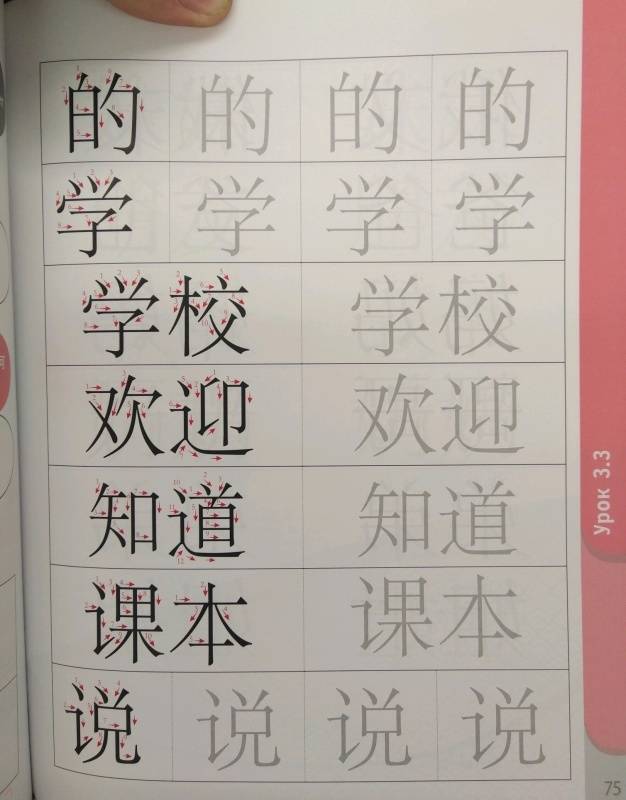 的 的 的 的
学 学 学 学
学校 学校
欢迎 欢迎
知道 知道
课本 课本
说 说 说 说
Урок 3.3
75